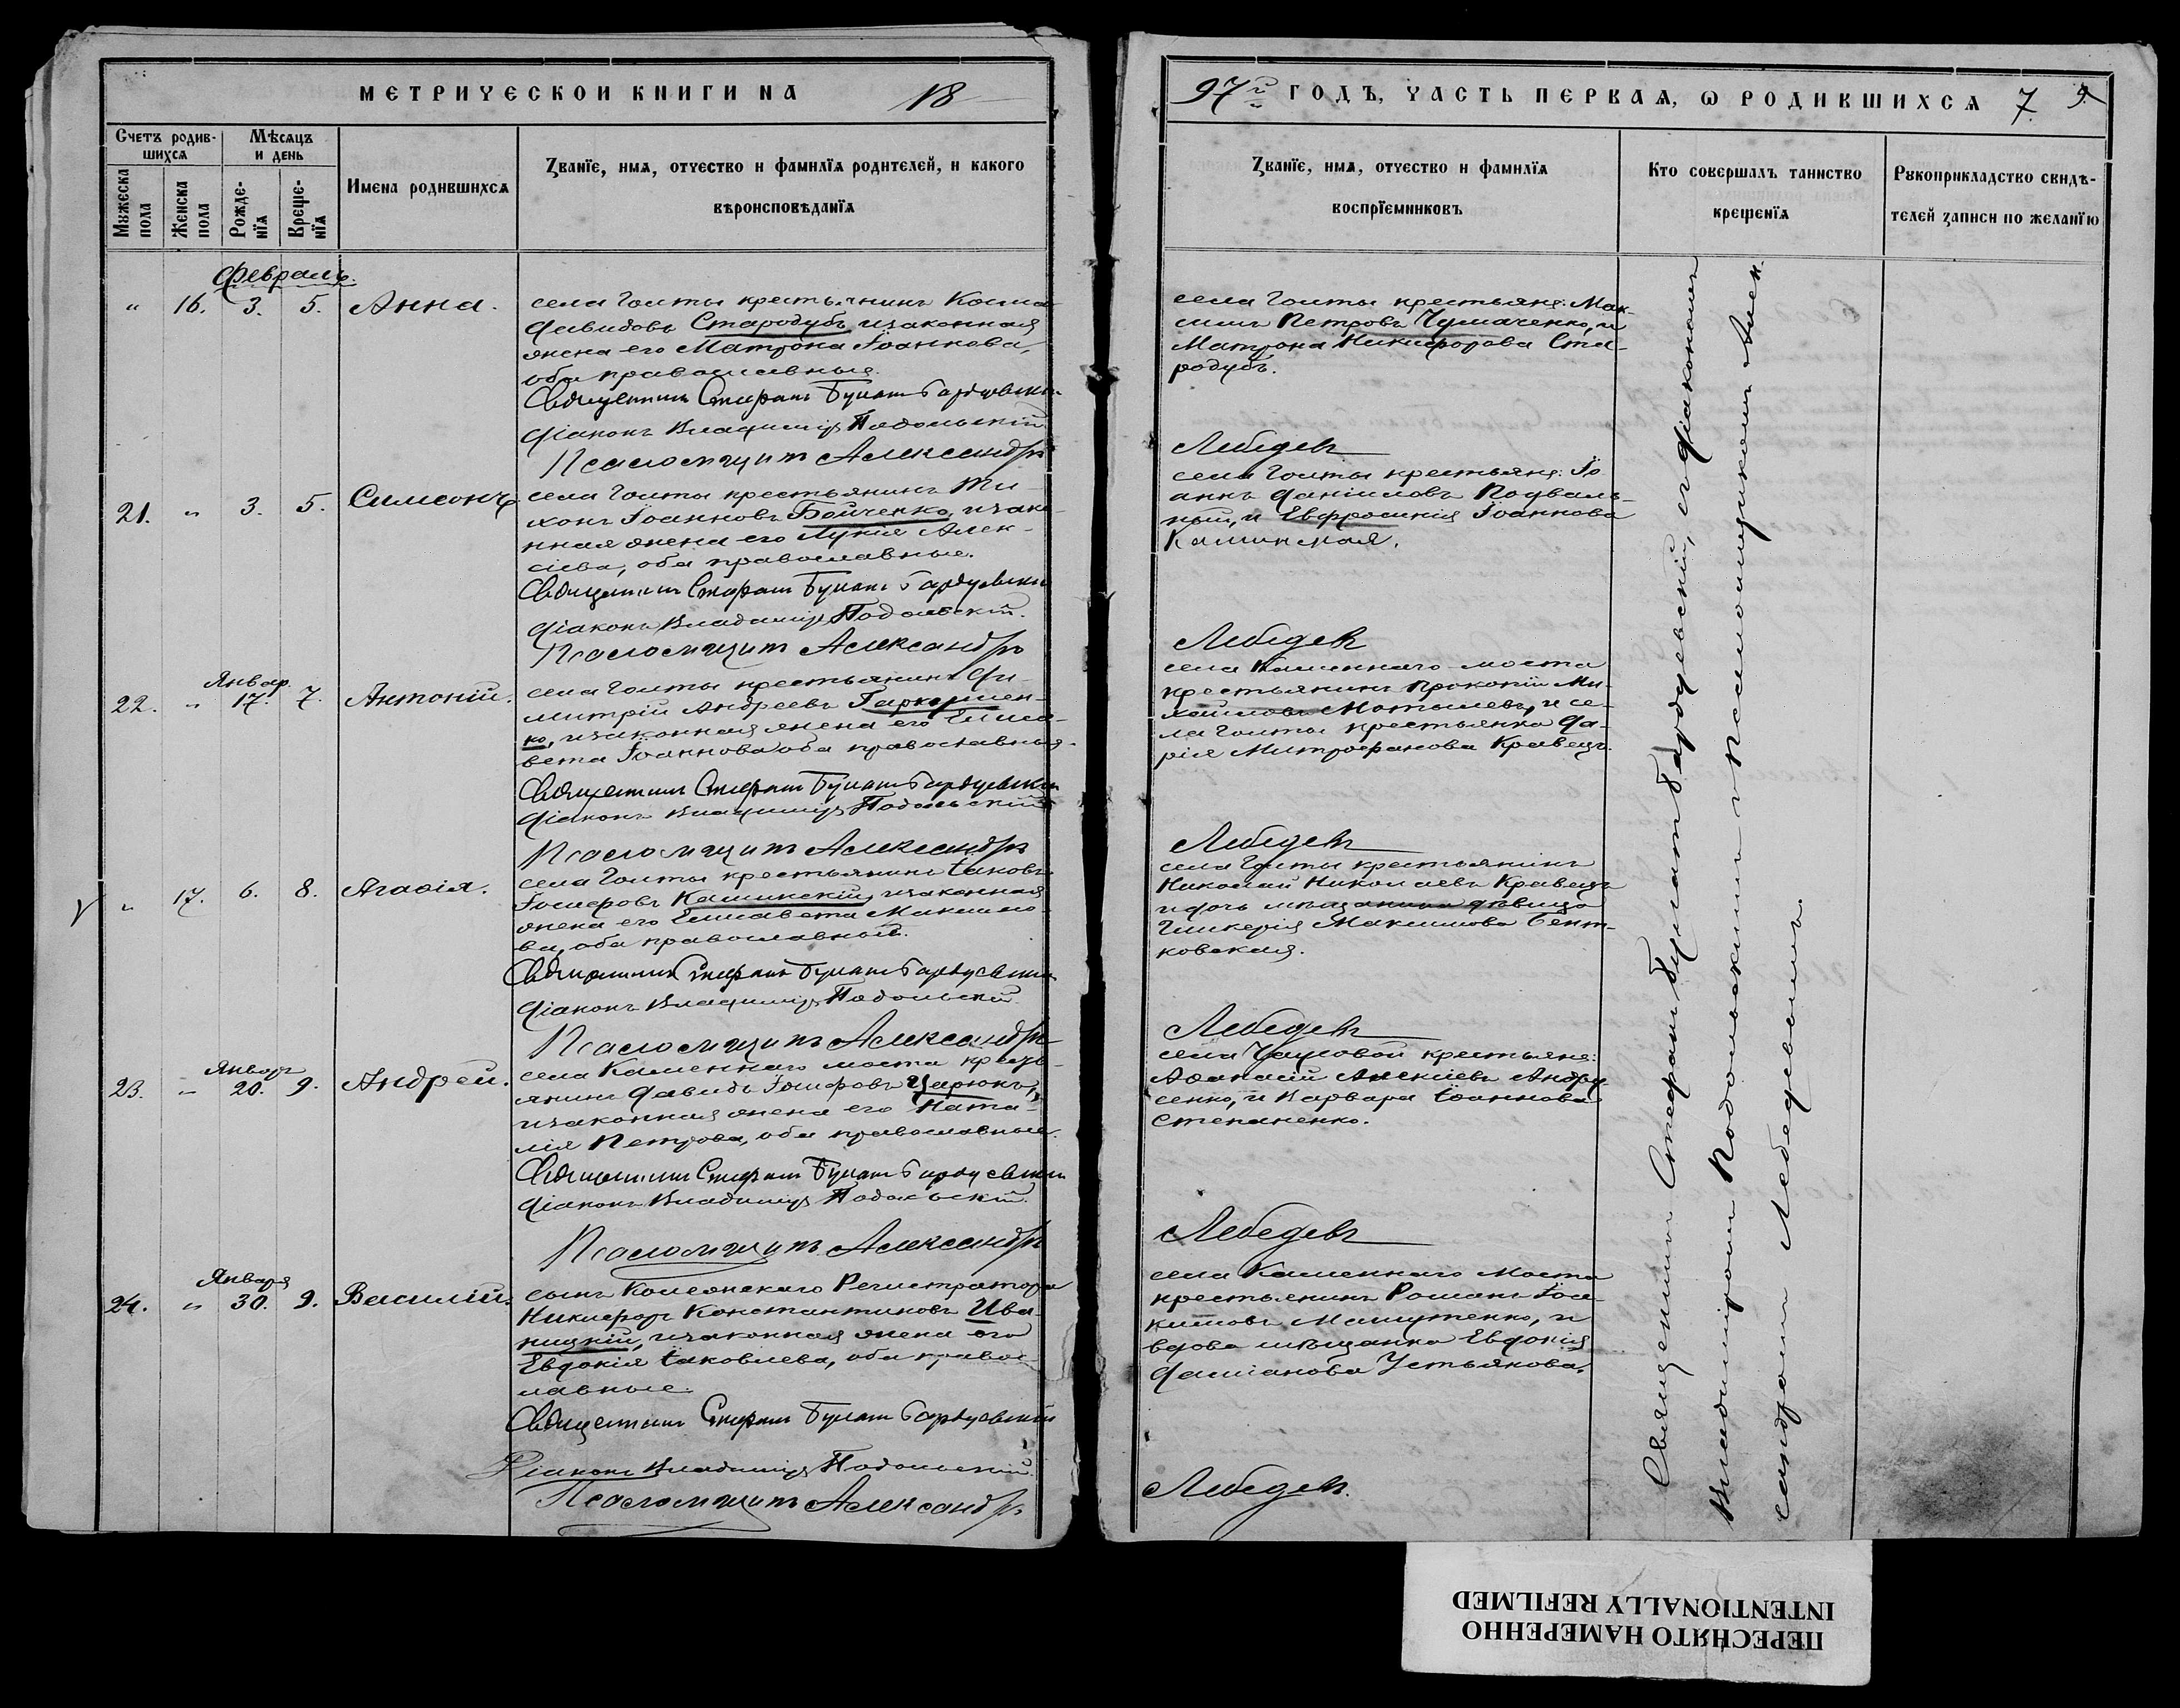 МЕТРИЧЕСКОЙ КНИГИ НА 18
97й ГОДЪ, ЧАСТЬ ПЕРВАЯ, О РОДИВШИХСЯ 7. 9.
Счетъ родив-
шихся
Мужеска пола
Женска пола
Мѣсяцъ
и день
Рожде-
нїя
Креще-
нїя
Имена родившихся
Званїе, имя, отчество и фамилїя родителей, и какого
вѣроисповѣданїя
Званїе, имя, отчество и фамилїя
воспрїемниковъ
Кто совершалъ таинство
крещенїя
Рукоприкладство свидѣ-
телей записи по желанїю
Февраль.
" 16. 3. 5. Анна.
села Голты крестьянинъ Косма
Давидовъ Стародубъ, и законная
жена его Матрона Іоаннова,
оба православные.
Священникъ Стефанъ Булатъ Гардуевскій
Діаконъ Владиміръ Подольскій
Псаломщикъ Александръ
села Голты крестьяне: Мак-
симъ Петровъ Чумаченко, и
Матрона Никифорова Ста-
родубъ.
Лебедевъ
21. " 3. 5. Симеонъ
села Голты крестьянинъ Ти-
хонъ Іоанновъ Бойченко, и зако-
нная жена его Лукія Алек-
сіева, оба православные.
Священникъ Стефанъ Булатъ Гардуевскій
Діаконъ Владиміръ Подольскій.
Псаломщикъ Александръ
села Голты крестьяне: Іо
аннъ Даніиловъ Подваль-
ный, и Евфросинія Іоаннова
Калинская.
Лебедевъ
Январ.
22. " 17. 7. Антоній.
села Голты крестьянинъ Ди-
митрій Андреевъ Гаркушен-
ко, и законная жена его Елиса-
вета Іоаннова оба православныя.
Священникъ Стефанъ Булатъ Гардуевскій
Діаконъ Владиміръ Подольскій
Псаломщикъ Александръ
села Каменнаго моста
крестьянинъ Прокопій Ми-
хаиловъ Мотылевъ, и се-
ла Голты крестьянка Да-
рія Митрофанова Кравецъ.
Лебедевъ
" 17. 6. 8. Агафія.
села Голты крестьянинъ Іаковъ
Іосифовъ Калинскій, и законная
жена его Елисавета Максимо-
ва, оба православные.
Священникъ Стефанъ Булатъ Гардуевскій
Діаконъ Владиміръ Подольскій
Псаломщикъ Александръ
села Голты крестьянинъ
Николай Николаевъ Кравецъ
и дочь мѣщанина дѣвица
Гликерія Максимова Бент-
ковская.
Лебедевъ
Январь
23. " 20. 9. Андрей.
села Каменнаго моста кресть-
янинъ Давидъ Іосифовъ Царюкъ,
и законная жена его Ната-
лія Петрова, оба православные.
Священникъ Стефанъ Булатъ Гардуевскій
Діаконъ Владиміръ Подольскій.
Псаломщикъ Александръ
крестьяне:
Аѳанасій Алексіевъ Андру
сенко, и Варвара Іоаннова
Степаненко.
Лебедевъ
Января
24. " 30. 9. Василій.
сынъ Колежскаго Регистратора
Никифоръ Константиновъ Ива-
ницкій, и законная жена его
Евдокія Іаковлева, оба правос-
лавные.
Священникъ Стефанъ Булатъ Гардуевскій
Діаконъ Владиміръ Подольскій.
Псаломщикъ Александръ
села Каменнаго Моста
крестьянинъ Романъ Іоа-
кимовъ Мамутенко, и
вдова мѣщанка Евдокія
Даміанова Устьянова.
Лебедевъ.
Священникъ Стефанъ Булатъ Гардуевскій, съ діакономъ
Владиміромъ Подольскимъ и Псаломщикомъ Алек-
сандромъ Лебедевымъ.
ПЕРЕСНЯТО НАМЕРЕННО
INTENTIONALLY REFILMED